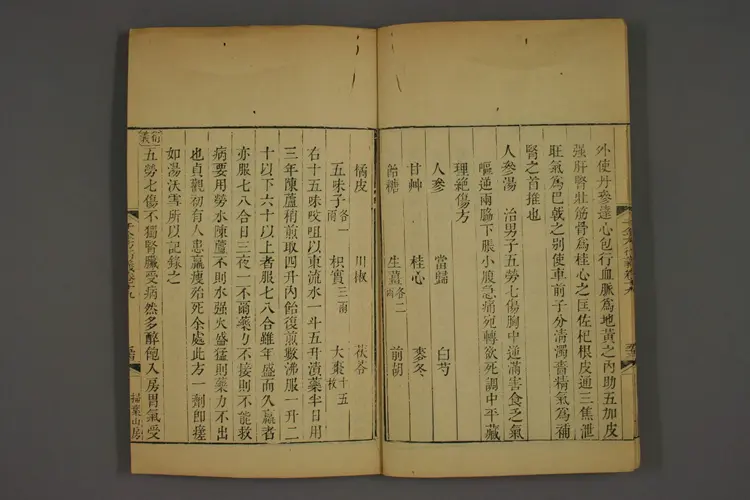 外使丹參達心包行血脈爲地黃之內助五加皮
強肝腎壯筋骨爲桂心之匡佐杞根皮通三焦泄
旺氣爲巴戟之別使車前子分淸濁畜精氣爲補
腎之首推也
人參湯　治男子五勞七傷胸中逆滿害食乏氣
嘔逆兩脇下脹小腹急痛宛轉欲死調中平藏
理絶傷方
人參　當歸　白芍
甘艸　桂心　麥冬
飴糖　生薑各二兩　前胡
橘皮　川椒　茯苓
五味子各一兩　枳實三兩　大棗十五枚
右十五味㕮咀以東流水一斗五升漬藥半日用
三年陳蘆稍煎取四升內飴復煎數沸服一升二
十以下六十以上者服七八合雖年盛而久羸者
亦服七八合日三夜一不爾藥力不接則不能救
病要用勞水陳蘆不則水强火盛猛則藥力不出
也貞觀初有人患羸瘦殆死余處此方一劑卽瘥
如湯沃雪所以記錄之
衍義
五勞七傷不獨腎臟受病然多醉飽入房胃氣受
掃葉山房